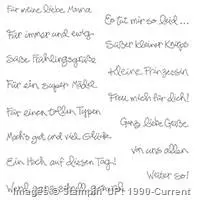 Für meine liebe Mama
Für immer und ewig
Süße Frühlingsgrüße
Für ein super Mädel
Für einen tollen Typen
Mach's gut und viel Glück
Ein Hoch auf diesen Tag!
Werd ganz schnell gesund
Es tut mir so leid...
Süßer kleiner Knopf
Kleine Prinzessin
Freu mich für dich!
Ganz liebe Grüße
von uns allen
Weiter so!
Images© Stampin' Up! 1990-Current